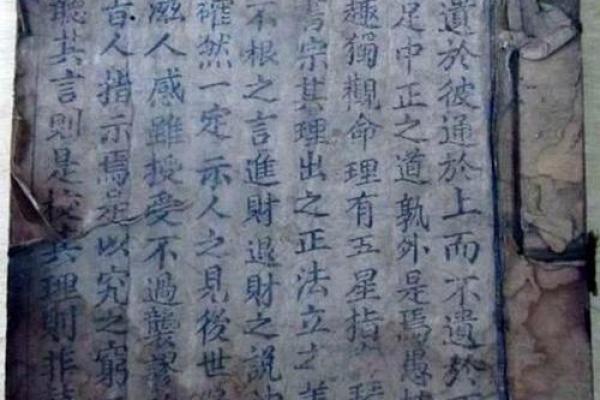 遺於彼通於上而不遺於
足中正之道孰外是焉愚
趣獨觀命理有五星指
書宗其理出之正法立之
不根之言進財退財之說
確然一定示人之見後世
滋人感雖授受不過襲謬
百人指示焉足以究之窮
聽其言則是校其理則非